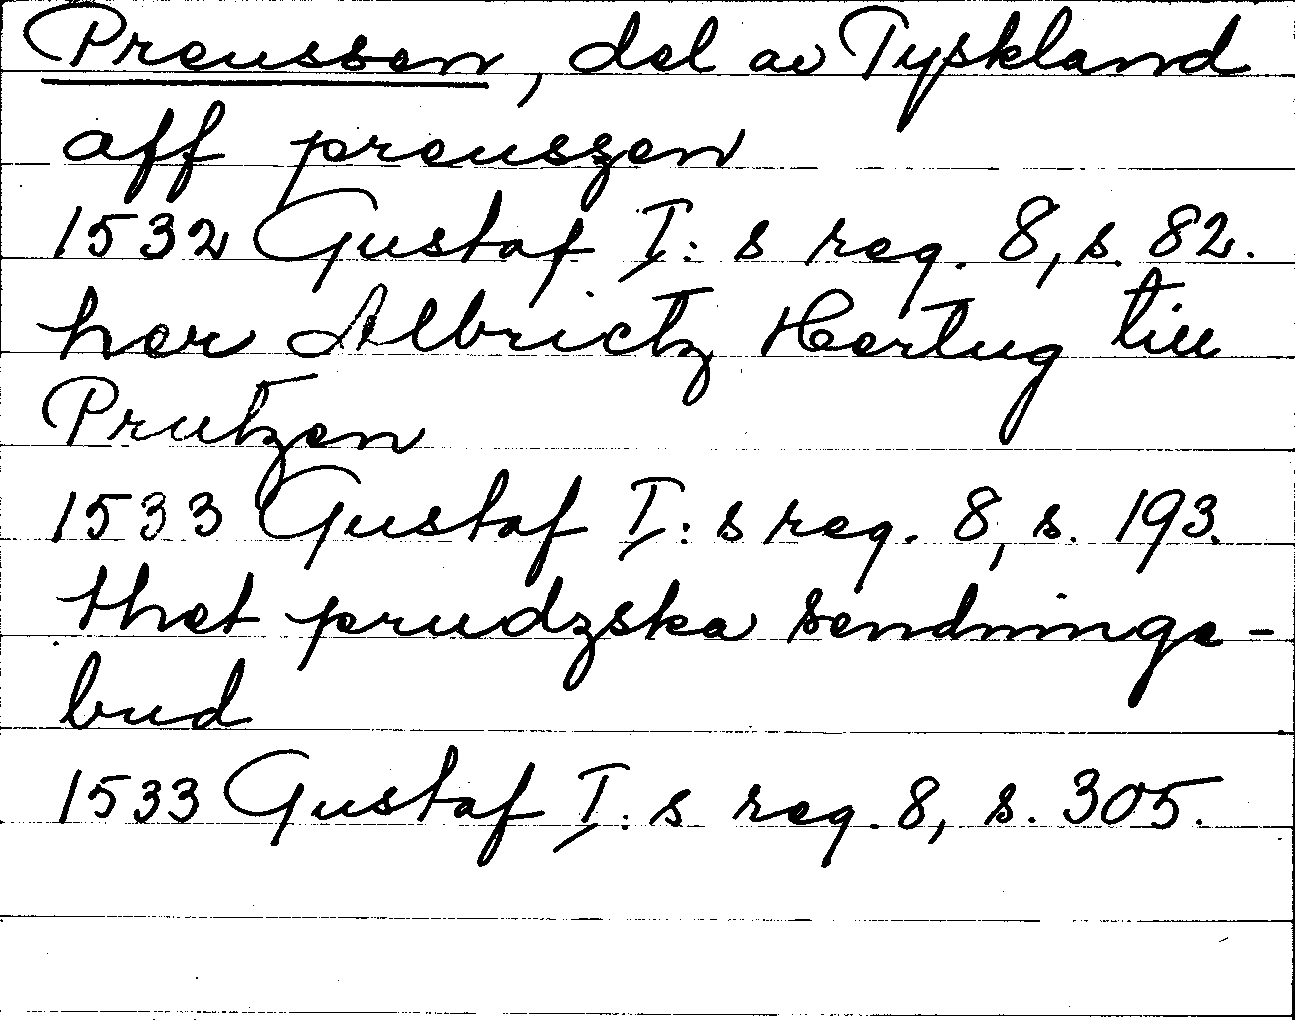 Preussen, del av Tyskland
aff preuszen
1532 Gustaf I:s reg. 8, s. 82.
her Albrictz Hertug till
Prutzen
1533 Gustaf I:s reg. 8, s. 193.
thet prudzska sendninge-
bud
1533 Gustaf I:s reg. 8, s. 305.